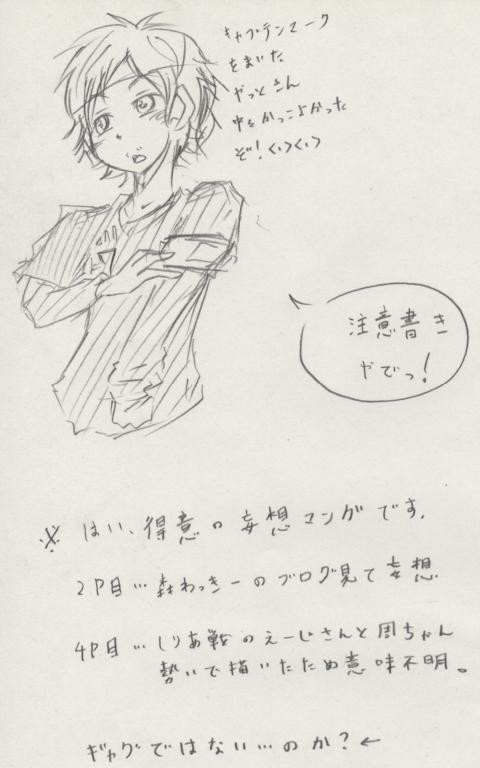 キャプテンマーク
をまいた
やっとさん
中々かっこよかった
ぞ!くいくい
注意書き
やでっ!
※ はい、得意の妄想マンガです。
2P目…森わっきーのブログ見て妄想
4P目…しりあ戦のえーじさんと周ちゃん
勢いで描いたため意味不明。
ギャグではない…のか?←